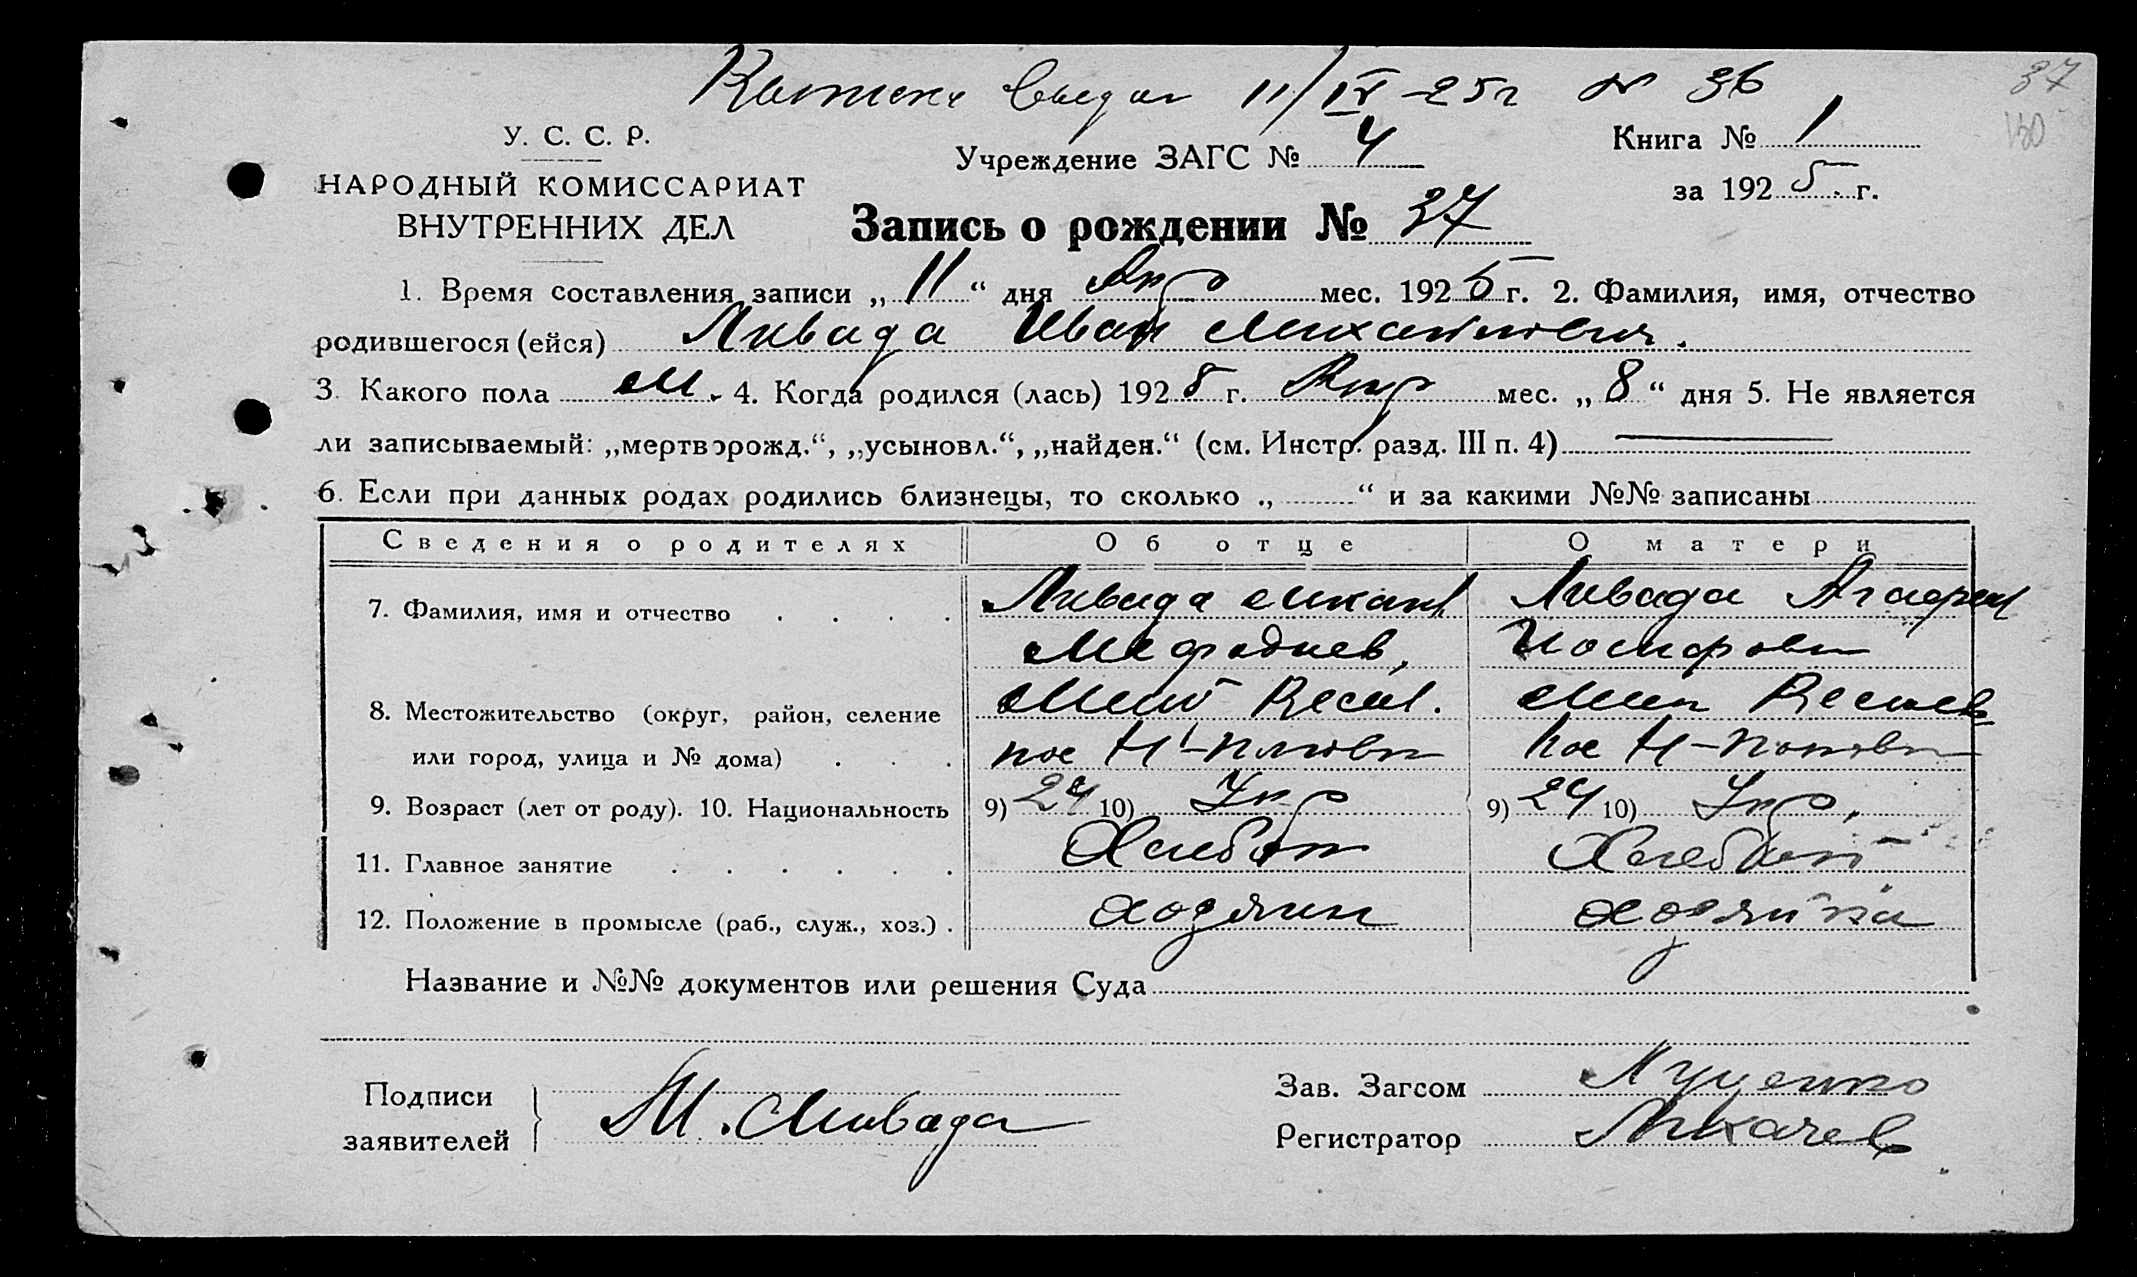 11/IV-25г № 36
37
150
У. С. С. Р.
Учреждение ЗАГС № 4
Книга № 1
НАРОДНЫЙ КОМИССАРИАТ
за 1925 г.
ВНУТРЕННИХ ДЕЛ
Запись о рождении № 37
1. Время составления записи „11“ дня Апр мес. 1925 г. 2. Фамилия, имя, отчество
родившегося (ейся) Ливада Иван Михайлович.
3. Какого пола М. 4. Когда родился (лась) 1925 г. Апр мес. „8“ дня 5. Не является
ли записываемый: „мертворожд.“, „усыновл.“, „найден.“ (см. Инстр. разд. III п. 4)
6. Если при данных родах родились близнецы, то сколько „ “ и за какими №№ записаны
Сведения о родителях Об отце О матери
7. Фамилия, имя и отчество Ливада Ливада Агафия
Мефодиев, Иосифовн
8. Местожительство (округ, район, селение
или город, улица и № дома)
9. Возраст (лет от роду). 10. Национальность 9) 24 10) Укр 9) 24 10) Укр.
11. Главное занятие Хлебоп Хлебоп
12. Положение в промысле (раб., служ., хоз.) хозяин хозяйка
Название и №№ документов или решения Суда
Подписи
заявителей
М. Ливада
Зав. Загсом Луценко
Регистратор Лихачев